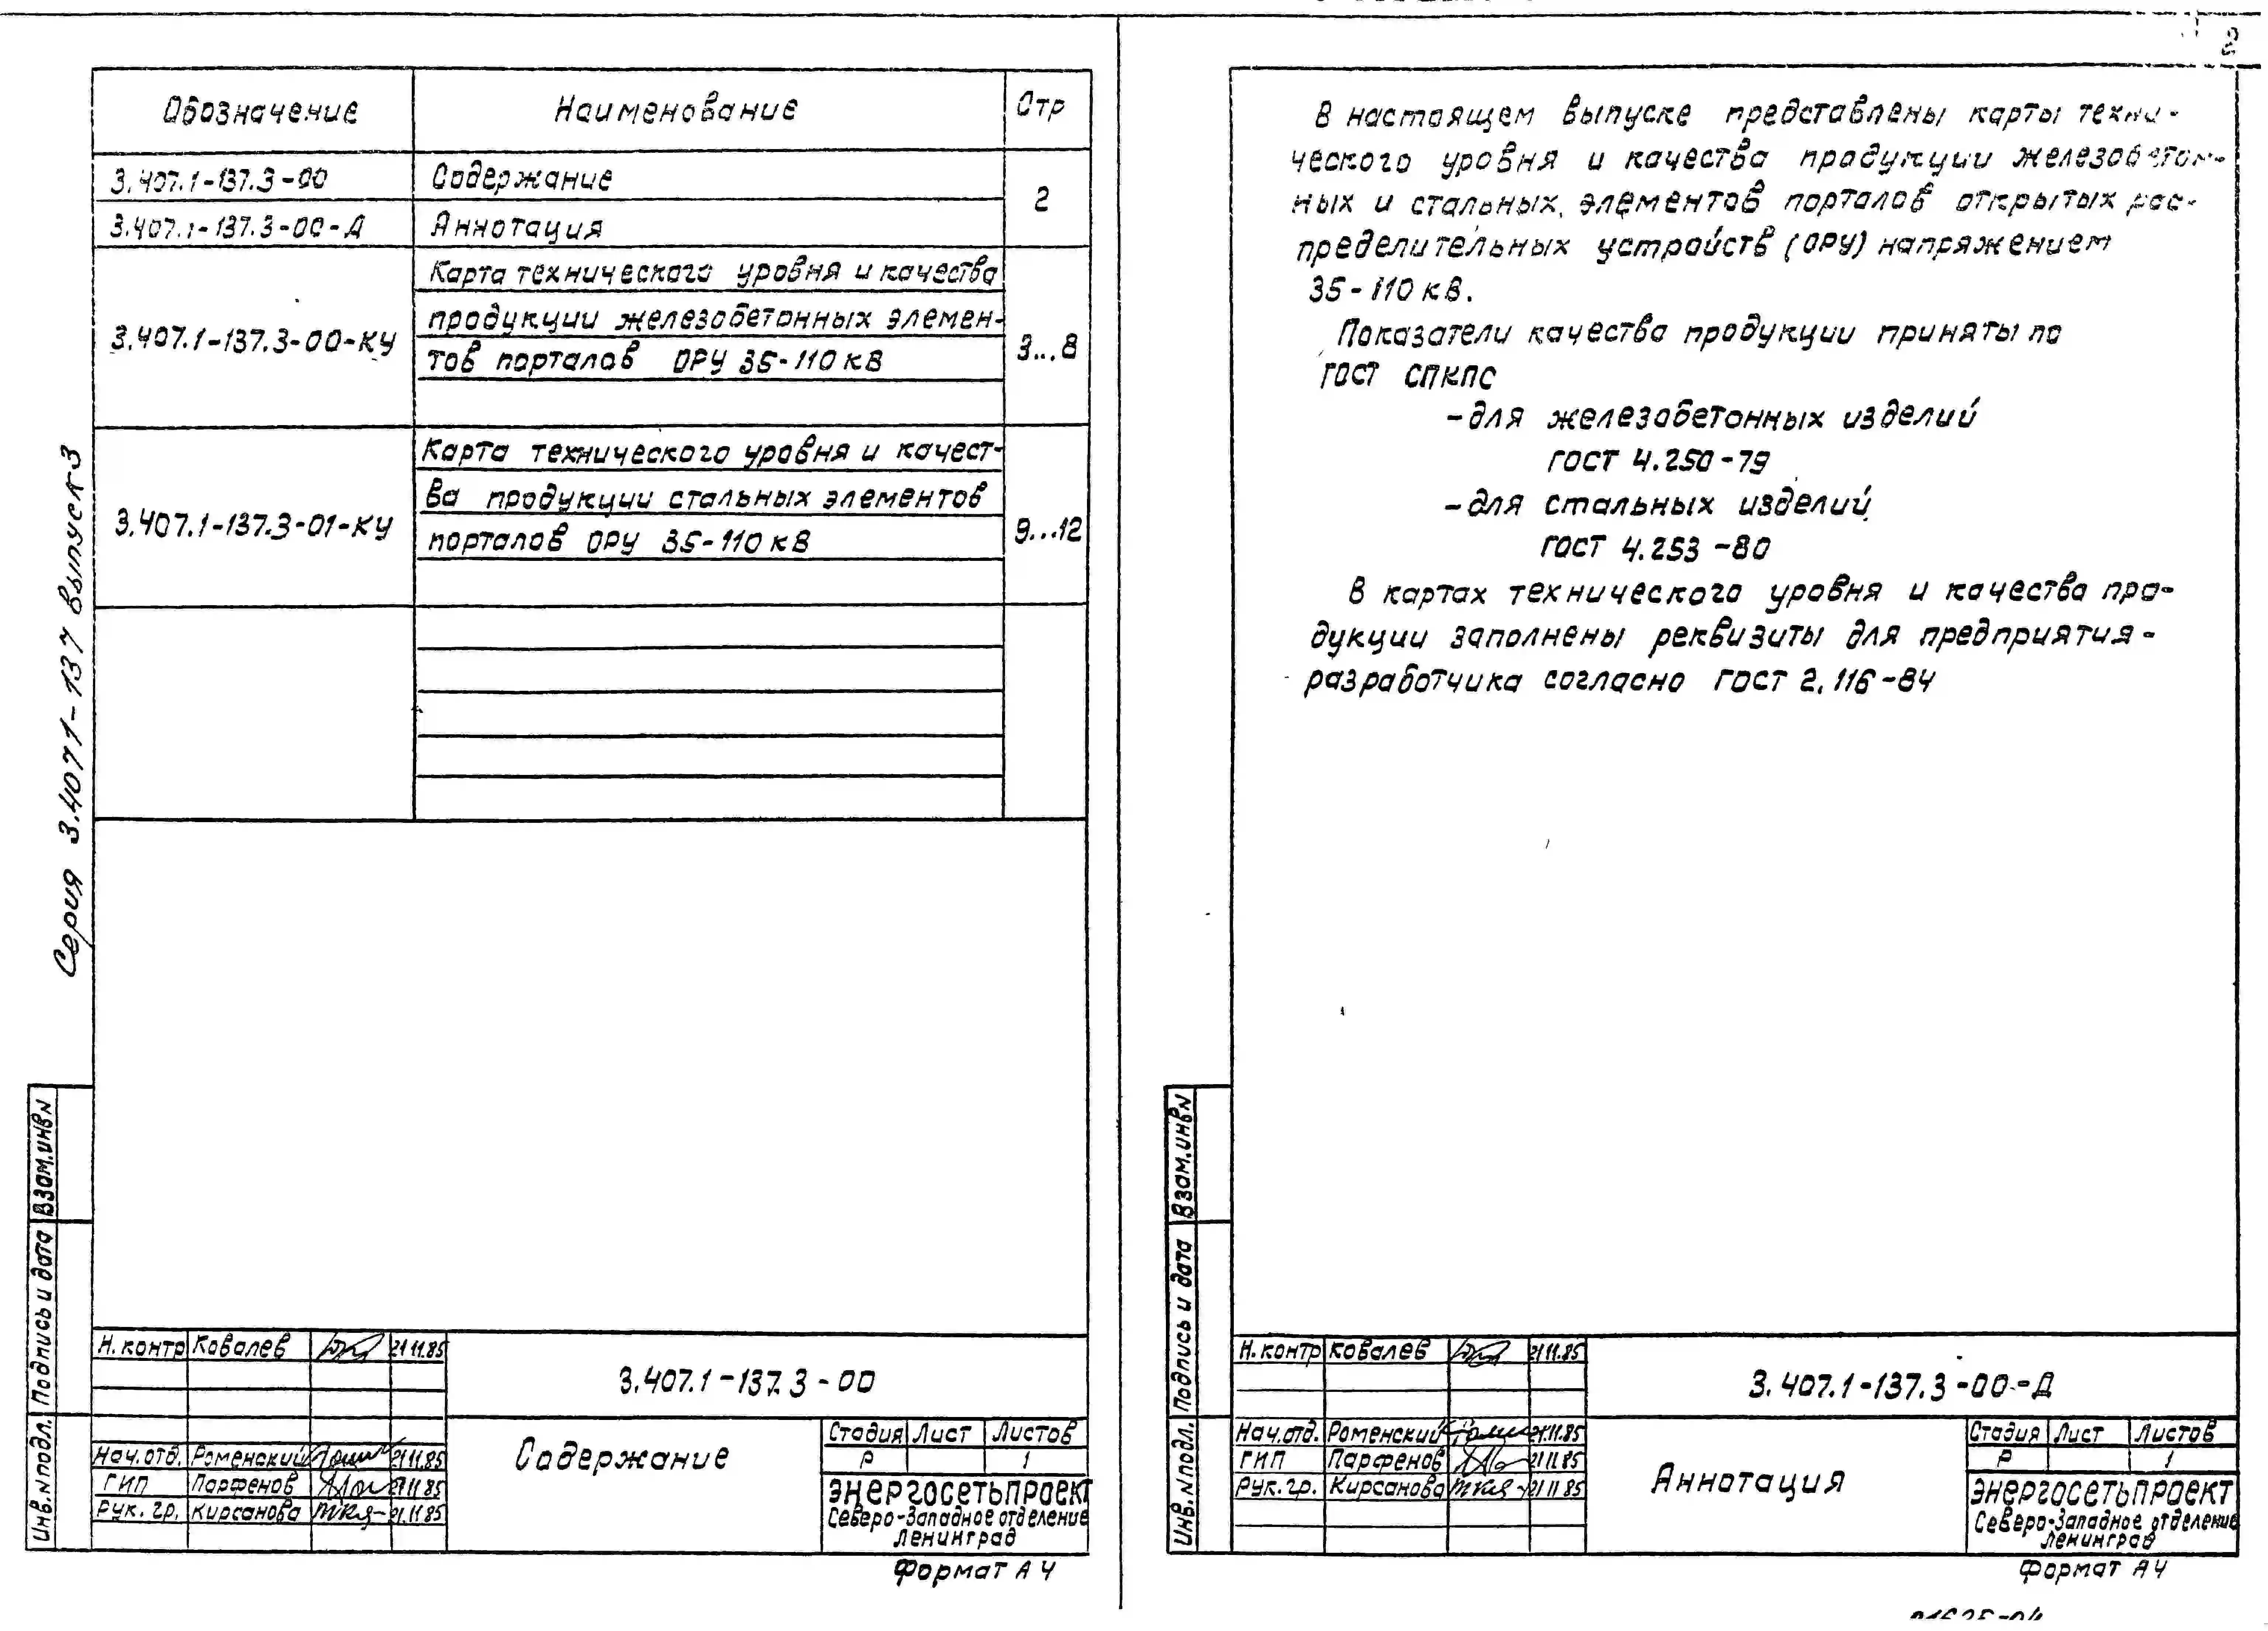 2
Обозначение Наименование Стр
3.407.1-137.3-00 Содержание 2
3.407.1-137.3-00-Д Аннотация
3.407.1-137.3-00-КУ Карта технического уровня и качества
продукции железобетонных элемен-
тов порталов ОРУ 35-110 кВ 3...8
3.407.1-137.3-01-КУ Карта технического уровня и качест-
ва продукции стальных элементов
порталов ОРУ 35-110 кВ 9...12
Серия 3.407.1-137 выпуск 3
Взам.инв№
Подпись и дата
Инв.№подл.
Н.контр Ковалев 21.11.85
3.407.1-137.3-00
Нач.отд. Роменский 21.11.85
ГИП Парфенов 21.11.85
Рук.гр. Кирсанова 21.11.85
Содержание
Стадия Лист Листов
Р 1
ЭНЕРГОСЕТЬПРОЕКТ
Северо-Западное отделение
Ленинград
Формат А4
В настоящем выпуске представлены карты техни-
ческого уровня и качества продукции железобетон-
ных и стальных элементов порталов открытых рас-
пределительных устройств (ОРУ) напряжением
35-110 кВ.
Показатели качества продукции приняты по
ГОСТ СПКПС
-для железобетонных изделий
ГОСТ 4.250-79
-для стальных изделий
ГОСТ 4.253-80
В картах технического уровня и качества про-
дукции заполнены реквизиты для предприятия-
разработчика согласно ГОСТ 2.116-84
Взам.инв№
Подпись и дата
Инв.№подл.
Н.контр Ковалев 21.11.85
3.407.1-137.3-00-Д
Нач.отд. Роменский 21.11.85
ГИП Парфенов 21.11.85
Рук.гр. Кирсанова 21.11.85
Аннотация
Стадия Лист Листов
Р 1
ЭНЕРГОСЕТЬПРОЕКТ
Северо-Западное отделение
Ленинград
Формат А4